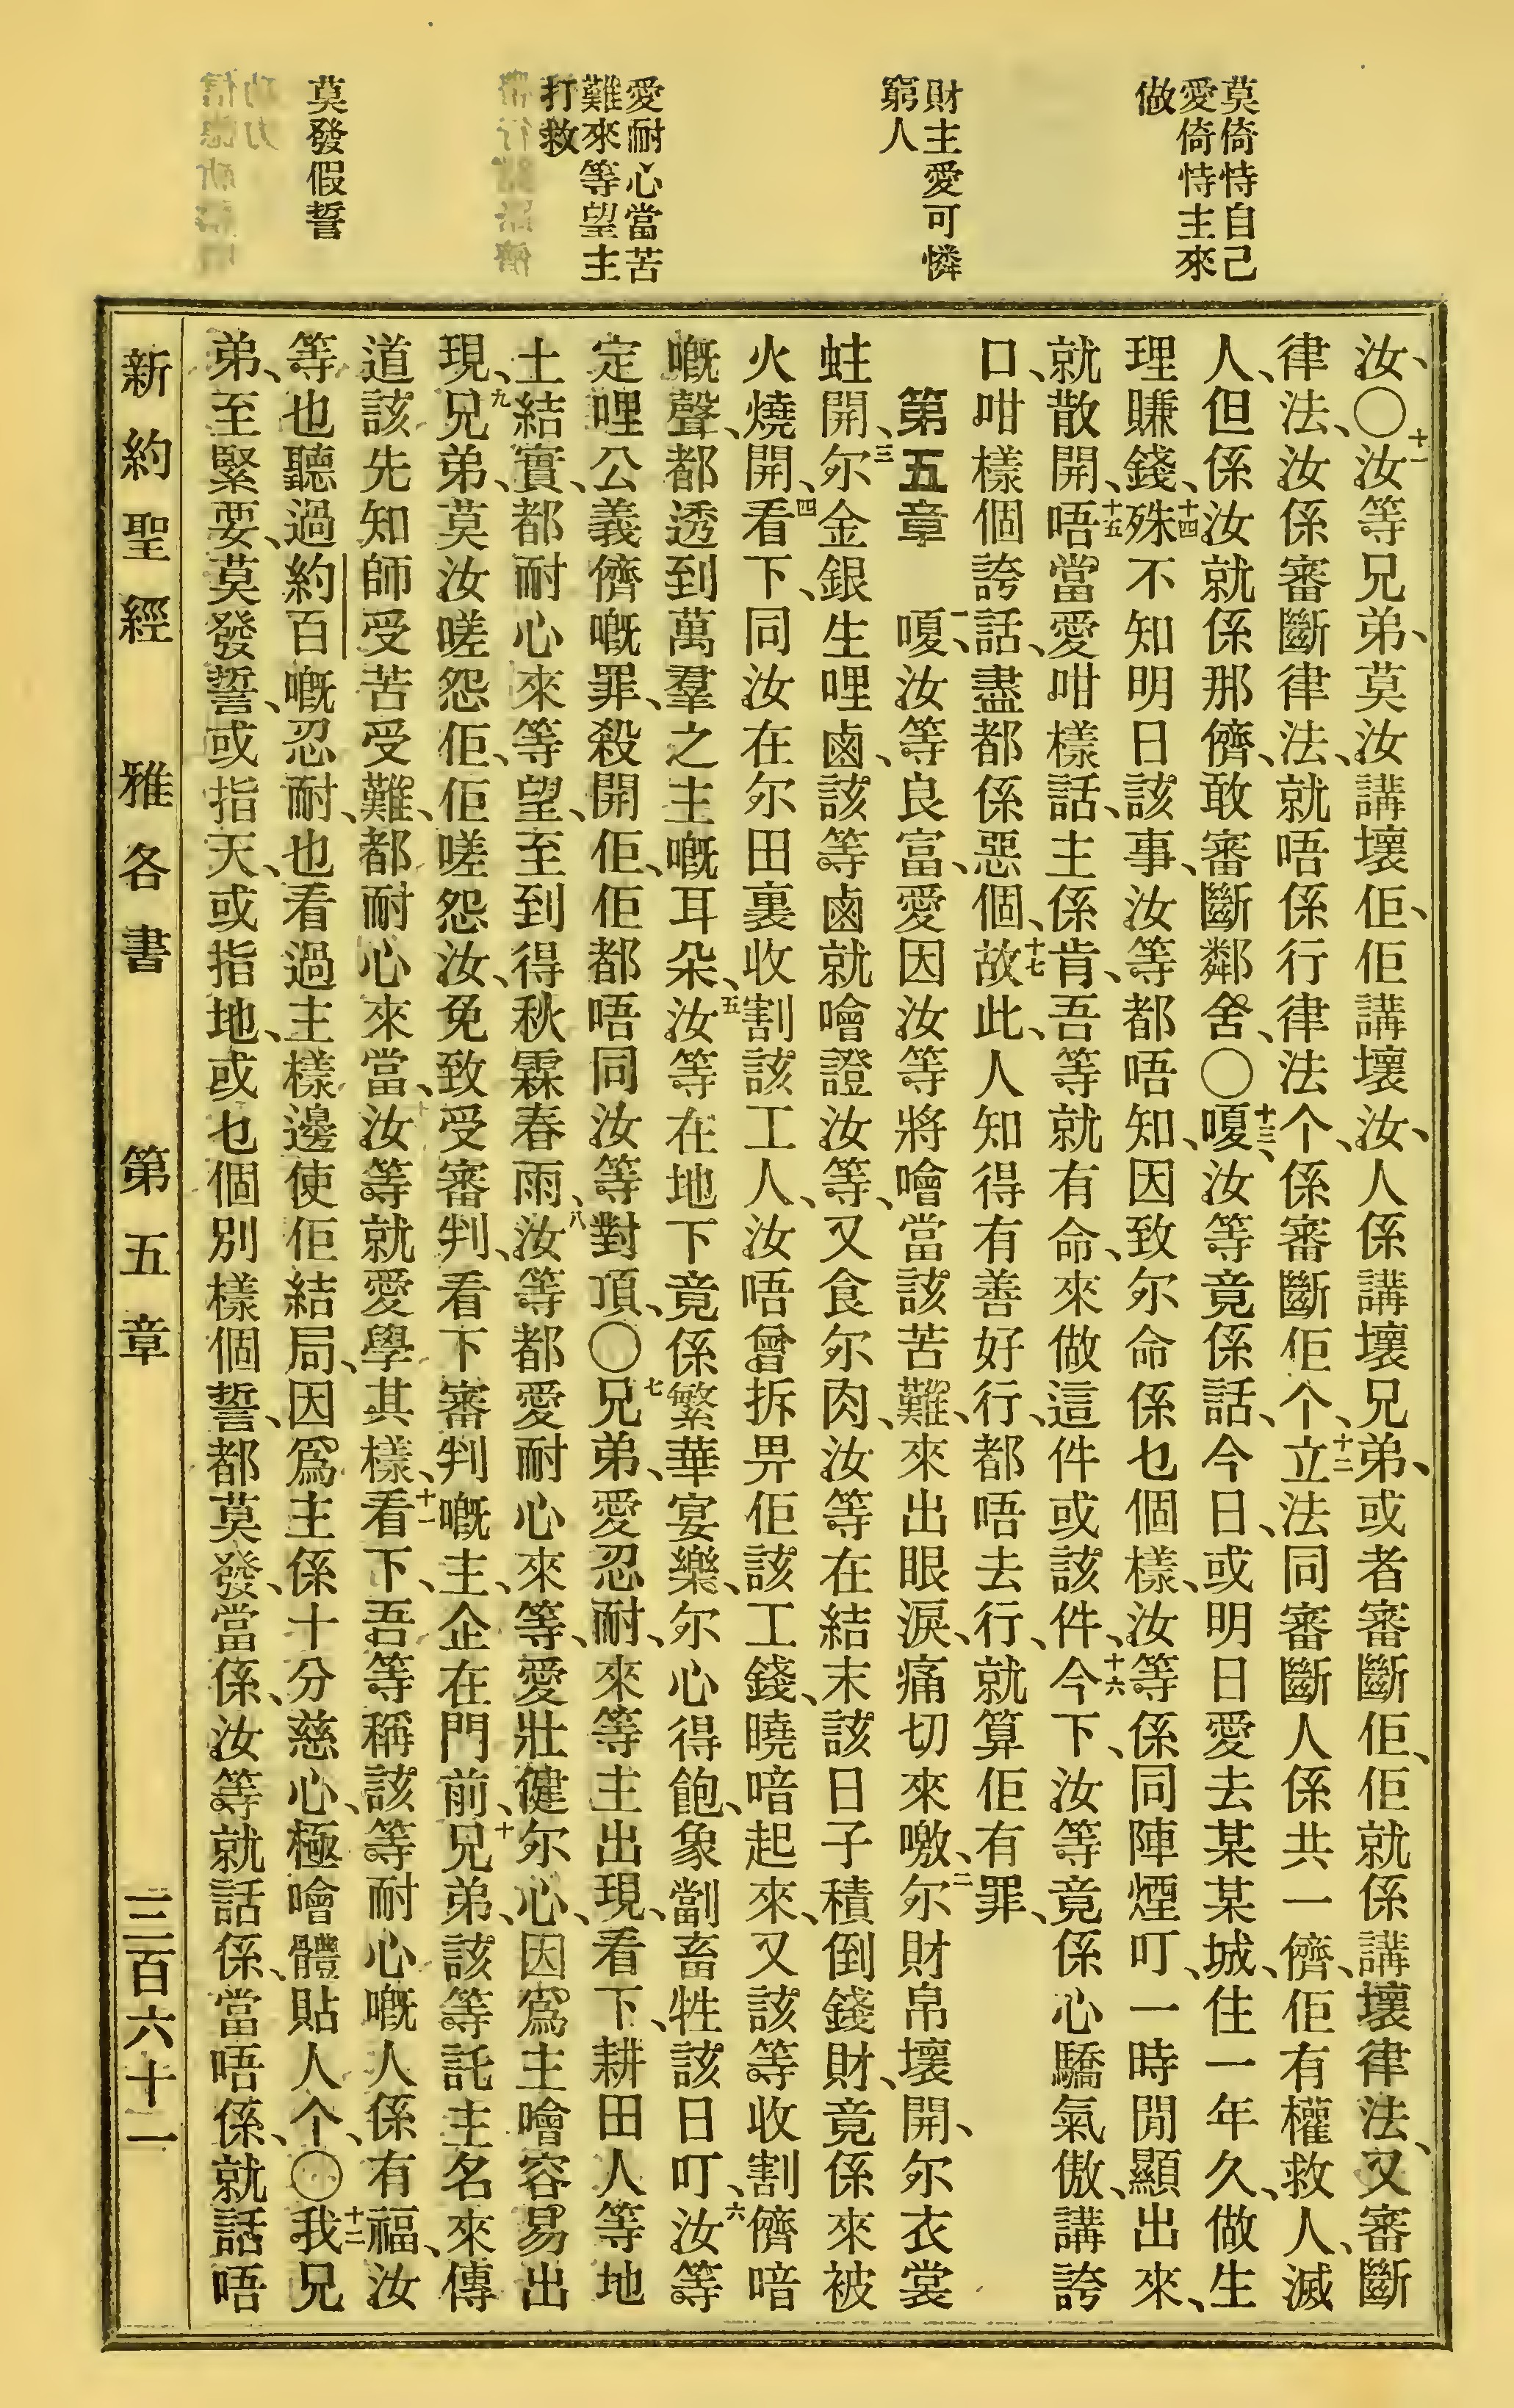 莫倚恃自己
愛倚恃主來
做
財主愛可憐
窮人
愛耐心當苦
難來等望主
打救
莫發假誓
汝、〇十一汝等兄弟、莫汝講壞佢、佢講壞汝、人係講壞兄弟、或者審斷佢、佢就係講壞律法、又審斷
律法、汝係審斷律法、就唔係行律法个、係審斷佢个、十二立法同審斷人係共一儕、佢有權救人、滅
人、但係汝就係那儕、敢審斷鄰舍、〇十三嗄、汝等竟係話、今日、或明日愛去某某城、住一年久、做生
理賺錢、十四殊不知明日該事、汝等都唔知、因致尔命係乜個樣、汝等係同陣煙叮、一時間顯出來、
就散開、十五唔當愛咁樣話、主係肯、吾等就有命、來做這件或該件、十六今下、汝等竟係心驕氣傲、講誇
口、咁樣個誇話、盡都係惡個、十七故此、人知得有善好行、都唔去行、就算佢有罪、
第五章 一嗄、汝等良富、愛因汝等將噲當該苦難、來出眼淚、痛切來噭、二尔財帛壞開、尔衣裳
蛀開、三尔金銀生哩鹵、該等鹵就噲證汝等、又食尔肉、汝等在結末該日子積倒錢財、竟係來被
火燒開、四看下、同汝在尔田裏收割該工人、汝唔曾拆畀佢該工錢、曉喑起來、又該等收割儕喑
嘅聲、都透到萬羣之主嘅耳朵、五汝等在地下竟係繁華宴樂、尔心得飽、象劏畜牲該日叮、六汝等
定哩公義儕嘅罪、殺開佢、佢都唔同汝等對頂、〇七兄弟、愛忍耐、來等主出現、看下、耕田人等地
土結實、都耐心來等望、至到得秋霖春雨、八汝等都愛耐心來等、愛壯健尔心、因爲主噲容易出
現、九兄弟、莫汝嗟怨佢、佢嗟怨汝、免致受審判、看下審判嘅主、企在門前、十兄弟、該等託主名來傳
道該先知師受苦受難、都耐心來當、汝等就愛學其樣、十一看下、吾等稱該等耐心嘅人係有福、汝
等也聽過約百嘅忍耐、也看過主樣邊使佢結局、因爲主係十分慈心、極噲體貼人个、〇十二我兄
弟、至緊要、莫發誓、或指天、或指地、或乜個別樣個誓、都莫發、當係、汝等就話係、當唔係、就話唔
新約聖經 雅各書 第五章 三百六十二